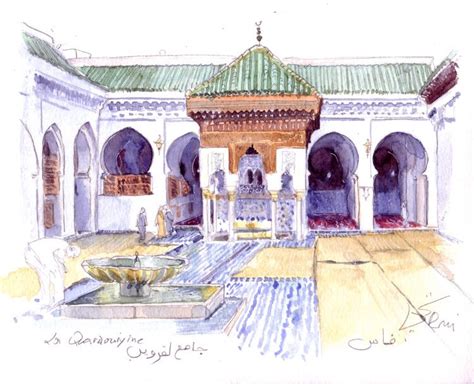 La Qaraouiyine
جامع لقرويين
فاس